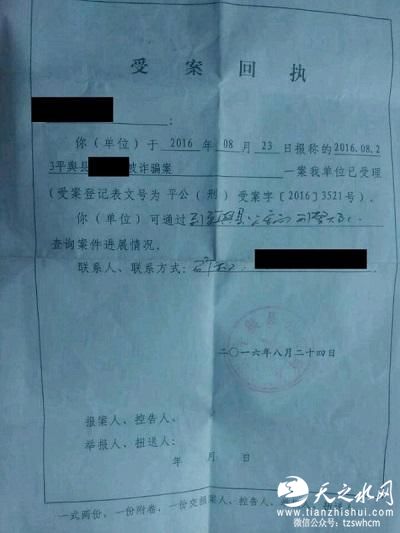 受案回执
：
你（单位）于 2016 年 08 月 23 日报称的2016.08.2
3平舆县 被诈骗案 一案我单位已受理
（受案登记表文号为 平公（刑）受案字[2016]3521号）.
你（单位）可通过 到平舆县公安局刑警大队
查询案件进展情况.
联系人、联系方式：
二〇一六年八月二十四日
报案人、控告人、
举报人、扭送人：
年 月 日
一式两份，一份附卷，一份交报案人、控告人、
天之水网
www.tianzhishui.com
微信公众号：tzswhcm